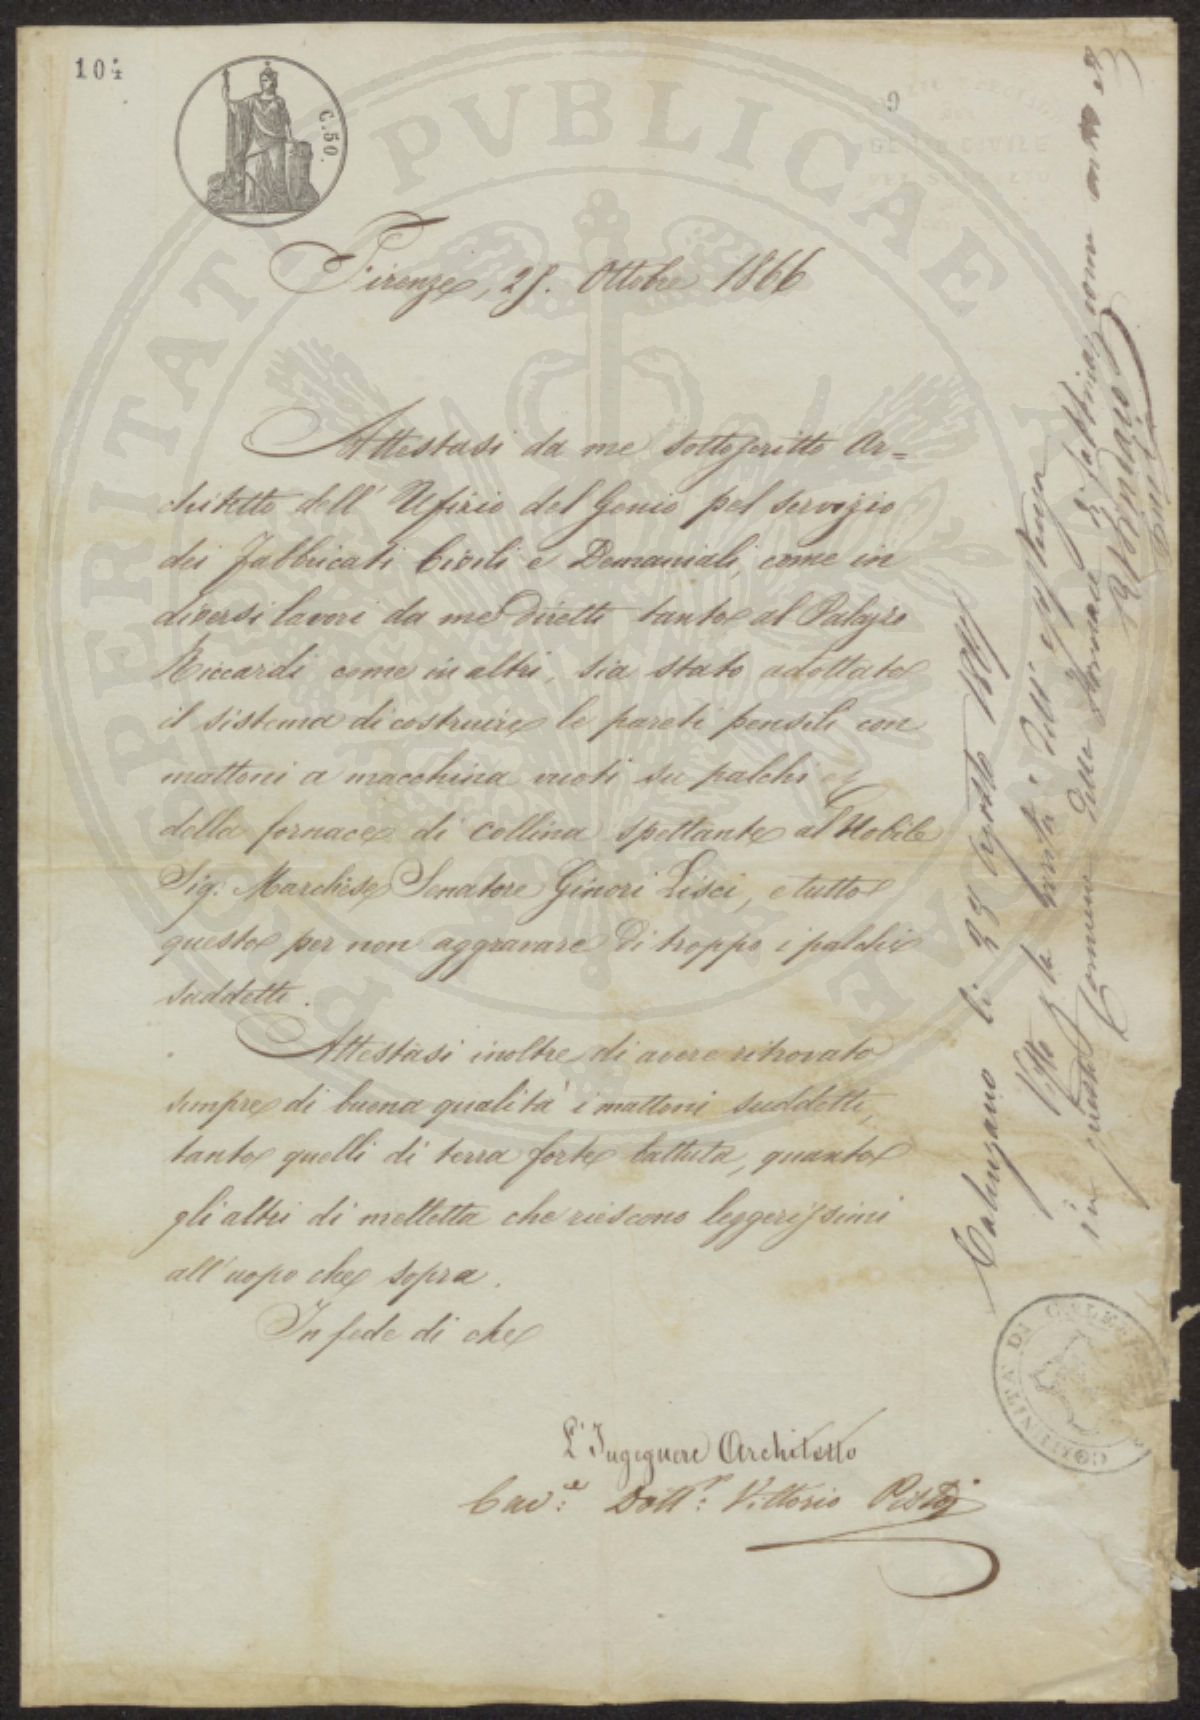 104
C. 50.
Firenze, 25. Ottobre 1866
Attestasi da me sottoscritto Ar=
chitetto dell' Ufizio del Genio pel servizio
dei Fabbricati Civili e Demaniali, come in
diversi lavori da me diretti tanto al Palazzo
Riccardi come in altri, sia stato adottato
il sistema di costruire le pareti pensili con
mattoni a macchina vuoti su palchi
della fornace di Collina spettante al Nobile
Sig: Marchese Senatore Ginori Lisci, e tutto
questo per non aggravare di troppo i palchi
suddetti.
Attestasi inoltre di avere ritrovato
sempre di buona qualità i mattoni suddetti,
tanto quelli di terra forte battuta, quanto
gli altri di melletta che riescono leggerissimi
all'uopo che sopra.
In fede di che
L'Ingegnere Architetto
Cav:e Dott:r Vittorio Pistoj
Calenzano li 29 Agosto 1867
Visto p la verità dell' esistenza
in questo Comune delle Fornaci di
Il Sindaco
COMUNITA DI CALEN
PERITAT PVBLICAE